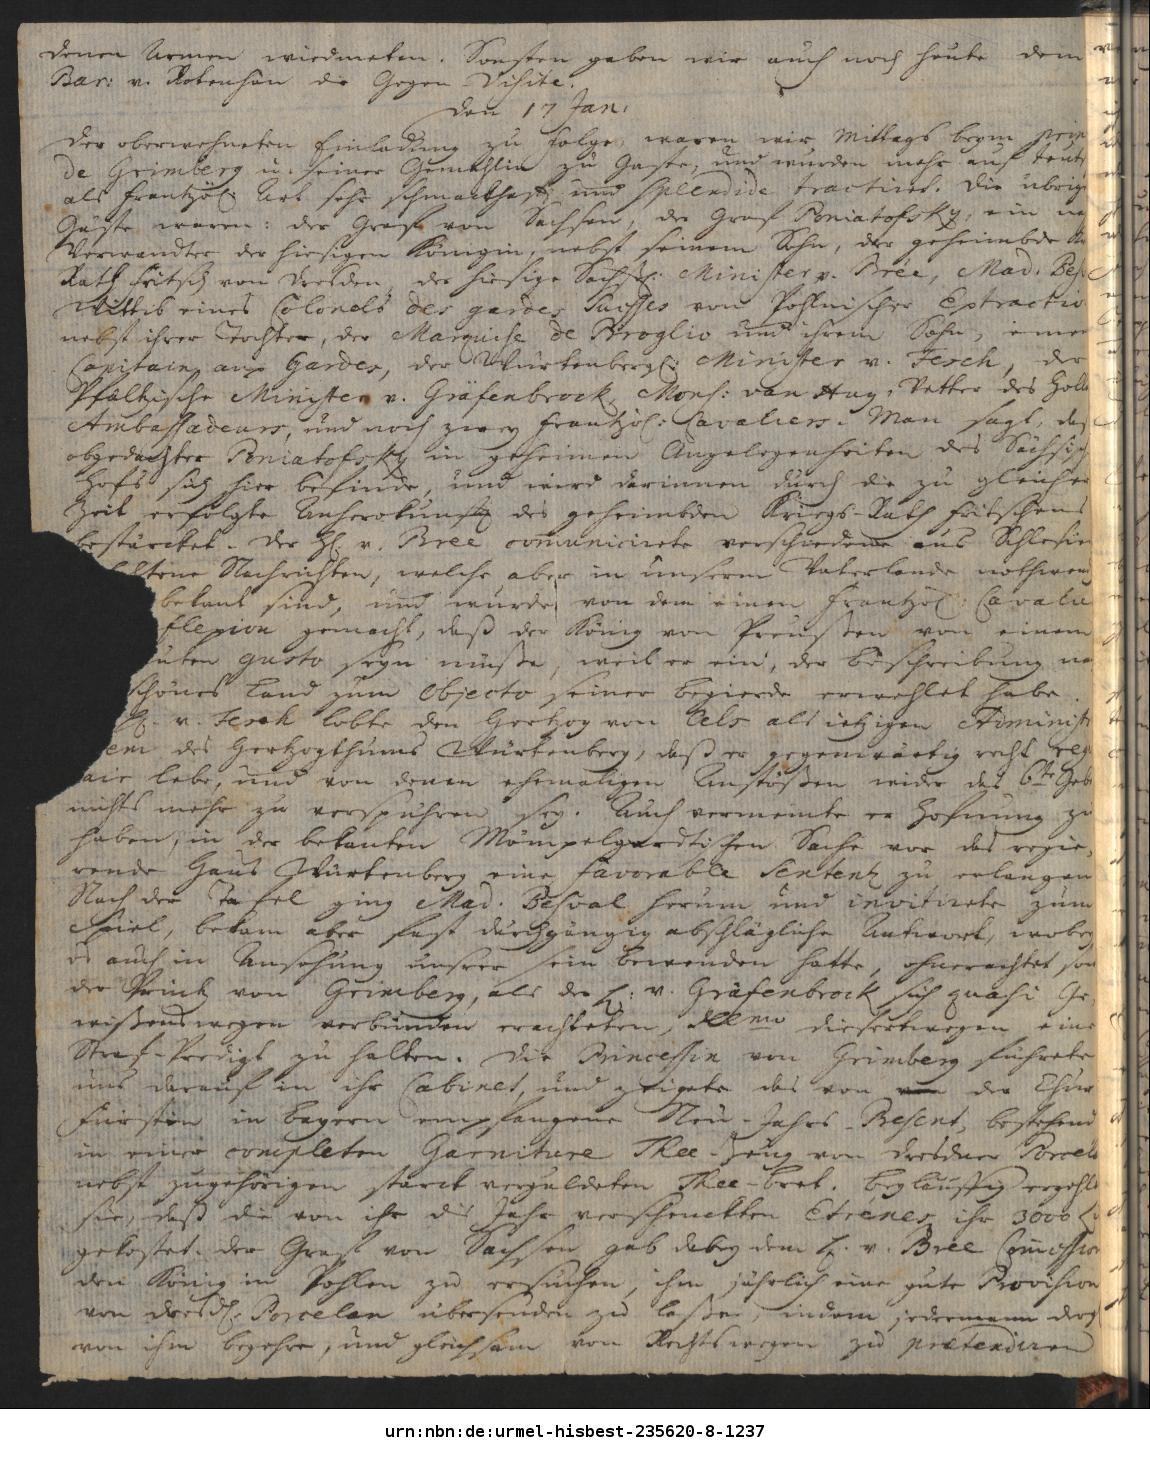 denen Armen wiedmeten. Sonsten gaben wir auch noch heute dem
Bar: v. Rotenhan die Gegen-Visite.
den 17 Jan:
Der oberwehneten Einladung zu folge, waren wir Mittags beym prin
de Grimberg u. seiner Gemahlin zu Gaste, und wurden mehr auf teut
als frantzös: Art sehr schmackhaft und splendide tractiret. Die übrig
Gäste waren: der Graf von Sachsen, der Graf Poniatofsky, ein na
Verwandter der hiesigen Königin, nebst seinem Sohn, der geheimbde
Rath Fritsch von Dresden, der hiesige Sächs: Minister v. Brée, Mad. Bes
Wittib eines Colonels des gardes Suisses von Pohlnischer Extractio
nebst ihrer Tochter, der Marquise de Broglio und ihrem Sohn, einem
Capitain aux Gardes, der Würtenberg: Minister v. Fesch, der
Pfältzische Minister v. Gräfenbrock, Mons: van Huy, Vetter des Holl
Ambassadeurs, und noch zwey frantzös: Cavaliers. Man sagt, daß
obgedachter Poniatofsky in geheimen Angelegenheiten des Sächsisch
Hofs sich hier befinde, und wird darinnen durch die zu gleicher
Zeit erfolgte Anherokunft des geheimbden Kriegs-Rath Fritschens
bestärcket. Der H. v. Bree comunicirete verschiedene aus Schlesien
altene Nachrichten, welche aber in unserm Vaterlande nothwend
bekant sind, und wurde von dem einen frantzös: Cavalie
flexion gemacht, daß der König von Preussen von einem
guten gusto seyn müsse, weil er ein, der Beschreibung na
schönes Land zum Objecto seiner Begierde erwehlet habe.
H. v. Fesch lobte den Hertzog von Oels als ietzigen Administ
em des Hertzogthums Würtenberg, daß er gegenwärtig recht reg
lair lebe, und von denen ehemaligen Anstößen wider das 6te Geb
nichts mehr zu verspühren sey. Auch vermeinte er Hofnung zu
haben, in der bekanten Mömpelgardtischen Sache vor das regie-
rende Haus Würtenberg eine favorable Sentenz zu erlangen
Nach der Tafel ging Mad. Besval herum und invitirete zum
Spiel, bekam aber fast durchgängig abschlägliche Antwort, wobey
es auch in Ansehung unserer sein bewenden hatte, ohnerachtet so
der Printz von Grimberg, als der H: v. Gräfenbrock sich quasi Ge-
wißenswegen verbunden erachteten, diesertwegen eine
Straf-Predigt zu halten. Die Princessin von Grimberg führete
uns darauf in ihr Cabinet, und zeigete das von der Chur
Fürstin in Bayern empfangene Neu-Jahrs-Present, bestehend
in einer completen Garniture Thee-Zeug von Dresdner Porcel
nebst zugehörigen starck verguldeten Thee-bret. Beyläufig erzehl
sie, daß die von ihr dis Jahr verschenckten Etrenes ihr 3000
gekostet. Der Graf von Sachsen gab dabey dem H. v. Bree Comission
den König in Pohlen zu ersuchen, ihm jährlich eine gute Provision
von Dresd: Porcelan übersenden zu lassen, indem jedermann derg
von ihm begehre, und gleichsam von Rechtswegen zu prætendiren
urn:nbn:de:urmel-hisbest-235620-8-1237